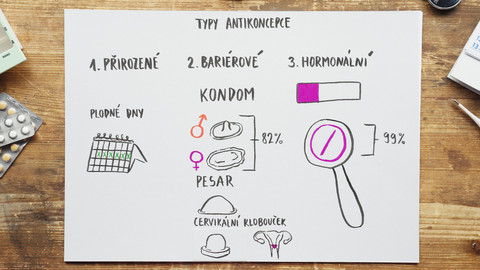 TYPY ANTIKONCEPCE
1. PŘIROZENÉ
2. BARIÉROVÉ
3. HORMONÁLNÍ
PLODNÉ DNY
KONDOM
82%
99%
PESAR
CERVIKÁLNÍ KLOBOUČEK